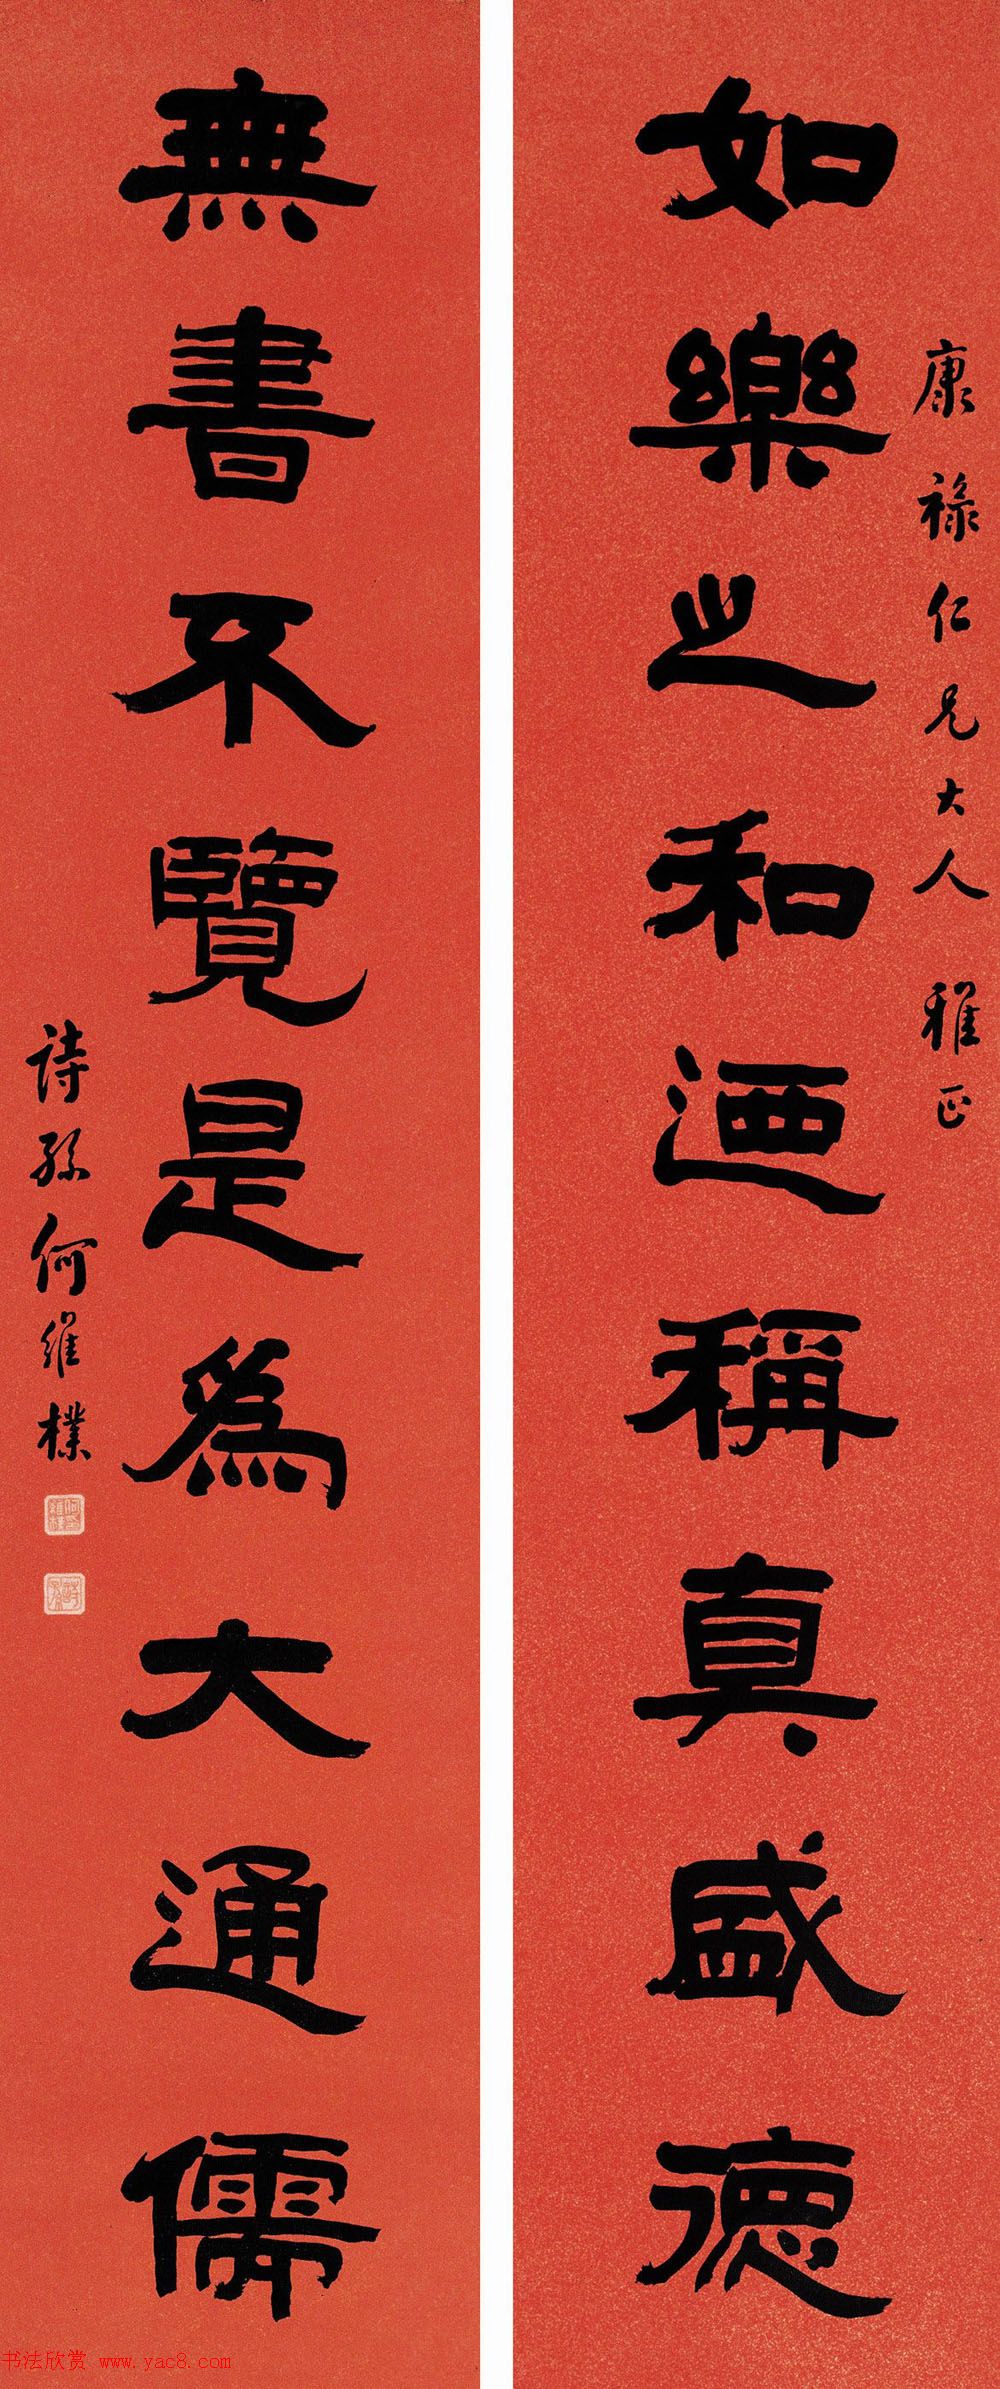 康祿仁兄大人雅正
如樂之和迺稱真盛德
無書不覽是為大通儒
詩孫何維樸
何維樸印
詩孫
书法欣赏 www.yac8.com